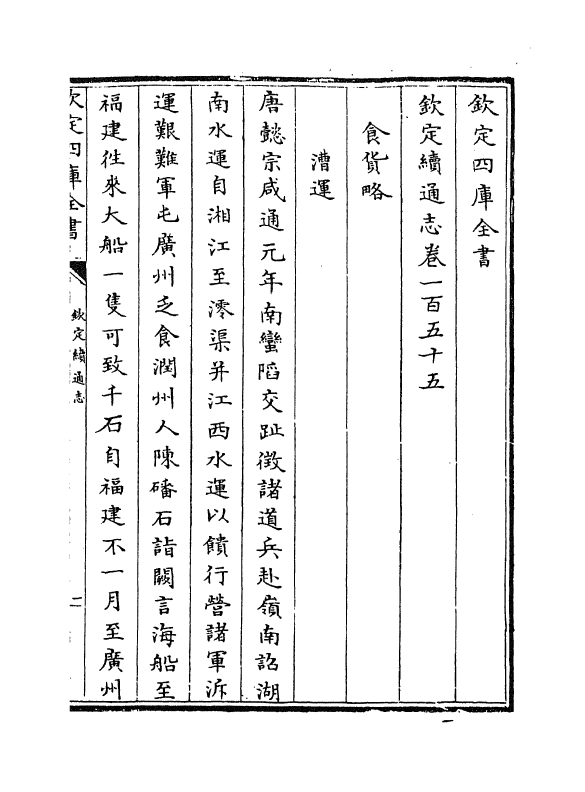 欽定四庫全書
欽定續通志卷一百五十五
食貨略
漕運
唐懿宗咸通元年南蠻䧟交趾徵諸道兵赴嶺南詔湖
南水運自湘江至澪渠并江西水運以饋行營諸軍泝
運艱難軍屯廣州乏食潤州人陳磻石詣闕言海船至
福建徃來大船一隻可致千石自福建不一月至廣州
欽定四庫全書
欽定續通志